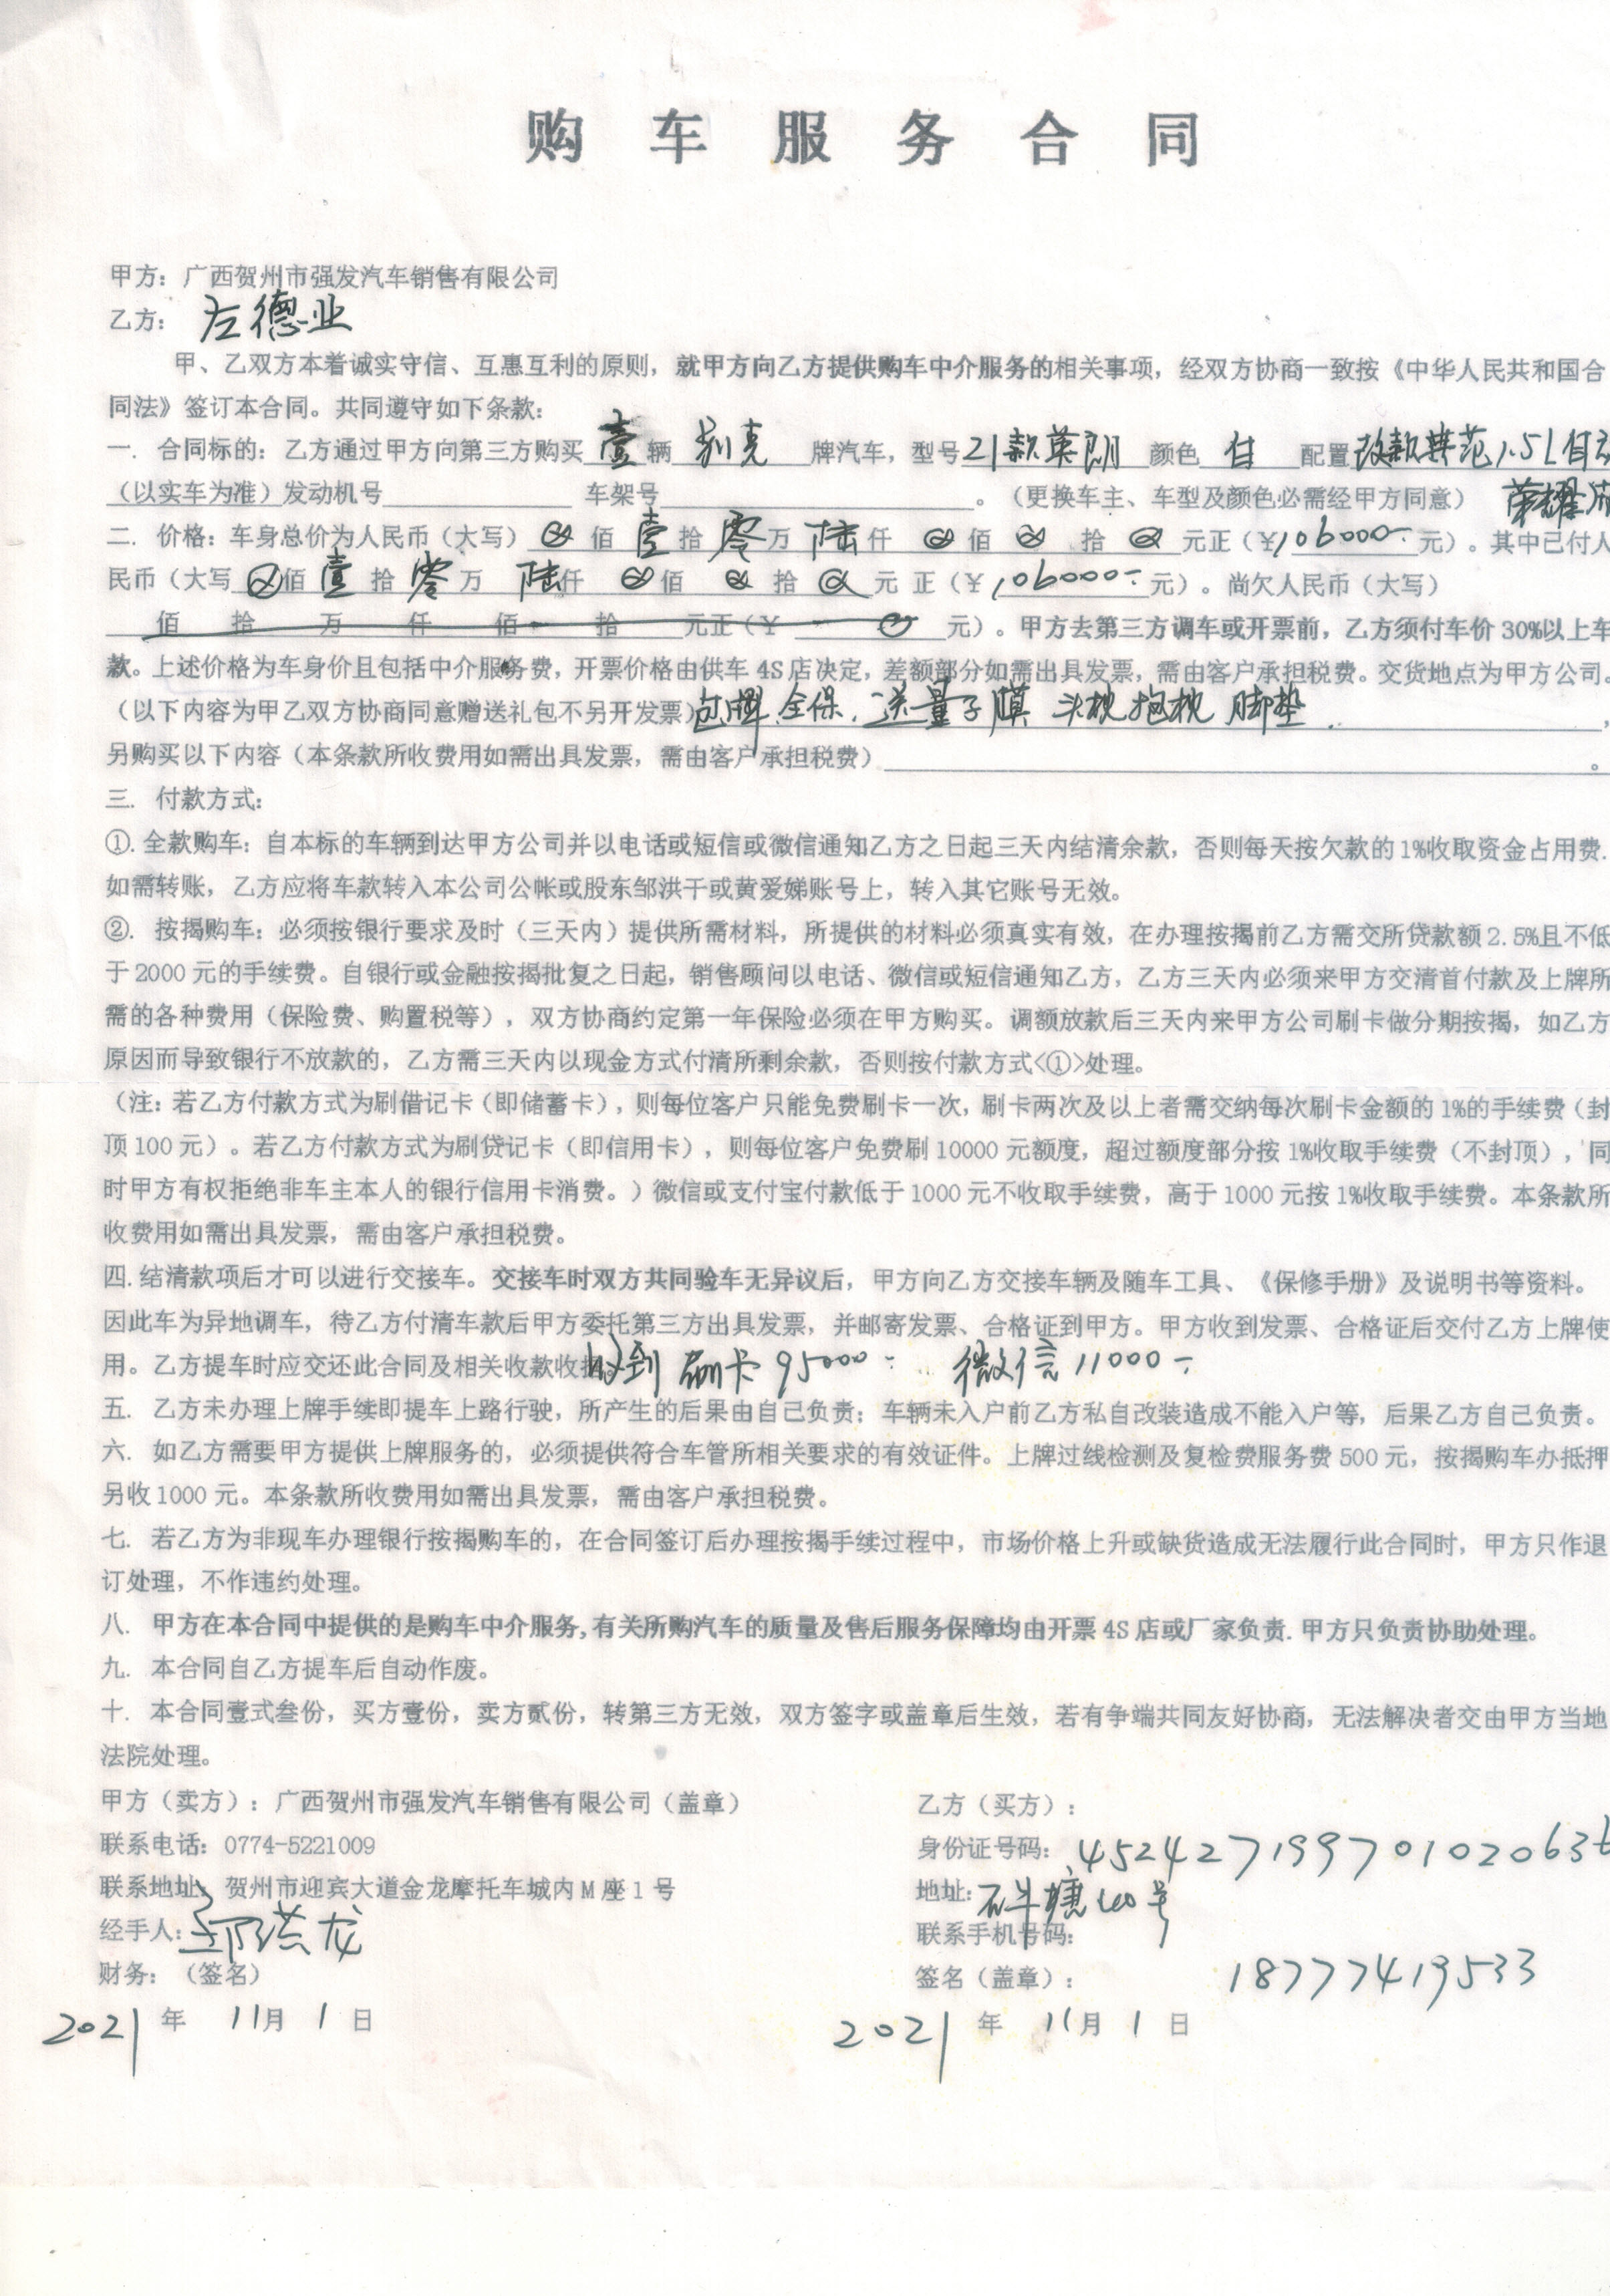 购车服务合同
甲方：广西贺州市强发汽车销售有限公司
乙方： 左德业
甲、乙双方本着诚实守信、互惠互利的原则，就甲方向乙方提供购车中介服务的相关事项，经双方协商一致按《中华人民共和国合
同法》签订本合同。共同遵守如下条款：
一. 合同标的：乙方通过甲方向第三方购买 壹 辆 别克 牌汽车，型号 21款英朗 颜色 白 配置 改款典范1.5L自动
（以实车为准）发动机号 车架号 。（更换车主、车型及颜色必需经甲方同意） 荣耀
二. 价格：车身总价为人民币（大写）⊗佰壹拾零万陆仟⊗佰⊗拾⊗元正（¥106000-元）。其中已付人
民币（大写⊗佰壹拾零万陆仟⊗佰⊗拾⊗元 正（¥106000-元）。尚欠人民币（大写）
佰 拾 万 仟 佰 拾 元正（¥ 0 元）。甲方去第三方调车或开票前，乙方须付车价 30%以上车
款。上述价格为车身价且包括中介服务费，开票价格由供车 4S 店决定，差额部分如需出具发票，需由客户承担税费。交货地点为甲方公司。
（以下内容为甲乙双方协商同意赠送礼包不另开发票）包牌.全保.送量子膜 头枕抱枕 脚垫. ，
另购买以下内容（本条款所收费用如需出具发票，需由客户承担税费） 。
三. 付款方式：
①. 全款购车：自本标的车辆到达甲方公司并以电话或短信或微信通知乙方之日起三天内结清余款，否则每天按欠款的 1%收取资金占用费.
如需转账，乙方应将车款转入本公司公帐或股东邹洪干或黄爱娣账号上，转入其它账号无效。
②. 按揭购车：必须按银行要求及时（三天内）提供所需材料，所提供的材料必须真实有效，在办理按揭前乙方需交所贷款额 2.5%且不低
于 2000 元的手续费。自银行或金融按揭批复之日起，销售顾问以电话、微信或短信通知乙方，乙方三天内必须来甲方交清首付款及上牌所
需的各种费用（保险费、购置税等），双方协商约定第一年保险必须在甲方购买。调额放款后三天内来甲方公司刷卡做分期按揭，如乙方
原因而导致银行不放款的，乙方需三天内以现金方式付清所剩余款，否则按付款方式<①>处理。
（注：若乙方付款方式为刷借记卡（即储蓄卡），则每位客户只能免费刷卡一次，刷卡两次及以上者需交纳每次刷卡金额的 1%的手续费（封
顶 100 元）。若乙方付款方式为刷贷记卡（即信用卡），则每位客户免费刷 10000 元额度，超过额度部分按 1%收取手续费（不封顶），同
时甲方有权拒绝非车主本人的银行信用卡消费。）微信或支付宝付款低于 1000 元不收取手续费，高于 1000 元按 1%收取手续费。本条款所
收费用如需出具发票，需由客户承担税费。
四. 结清款项后才可以进行交接车。交接车时双方共同验车无异议后，甲方向乙方交接车辆及随车工具、《保修手册》及说明书等资料。
因此车为异地调车，待乙方付清车款后甲方委托第三方出具发票，并邮寄发票、合格证到甲方。甲方收到发票、合格证后交付乙方上牌使
用。乙方提车时应交还此合同及相关收款收据。收到 刷卡 95000- 微信 11000-
五. 乙方未办理上牌手续即提车上路行驶，所产生的后果由自己负责；车辆未入户前乙方私自改装造成不能入户等，后果乙方自己负责。
六. 如乙方需要甲方提供上牌服务的，必须提供符合车管所相关要求的有效证件。上牌过线检测及复检费服务费 500 元，按揭购车办抵押
另收 1000 元。本条款所收费用如需出具发票，需由客户承担税费。
七. 若乙方为非现车办理银行按揭购车的，在合同签订后办理按揭手续过程中，市场价格上升或缺货造成无法履行此合同时，甲方只作退
订处理，不作违约处理。
八. 甲方在本合同中提供的是购车中介服务,有关所购汽车的质量及售后服务保障均由开票 4S 店或厂家负责.甲方只负责协助处理。
九. 本合同自乙方提车后自动作废。
十. 本合同壹式叁份，买方壹份，卖方贰份，转第三方无效，双方签字或盖章后生效，若有争端共同友好协商，无法解决者交由甲方当地
法院处理。
甲方（卖方）：广西贺州市强发汽车销售有限公司（盖章） 乙方（买方）：
联系电话：0774-5221009 身份证号码：452427199701020636
联系地址：贺州市迎宾大道金龙摩托车城内 M 座 1 号 地址：石牛塘 号
经手人：邹洪龙 联系手机号码：
财务：（签名） 签名（盖章）： 18777419533
2021 年 11月 1 日 2021 年 11月 1 日